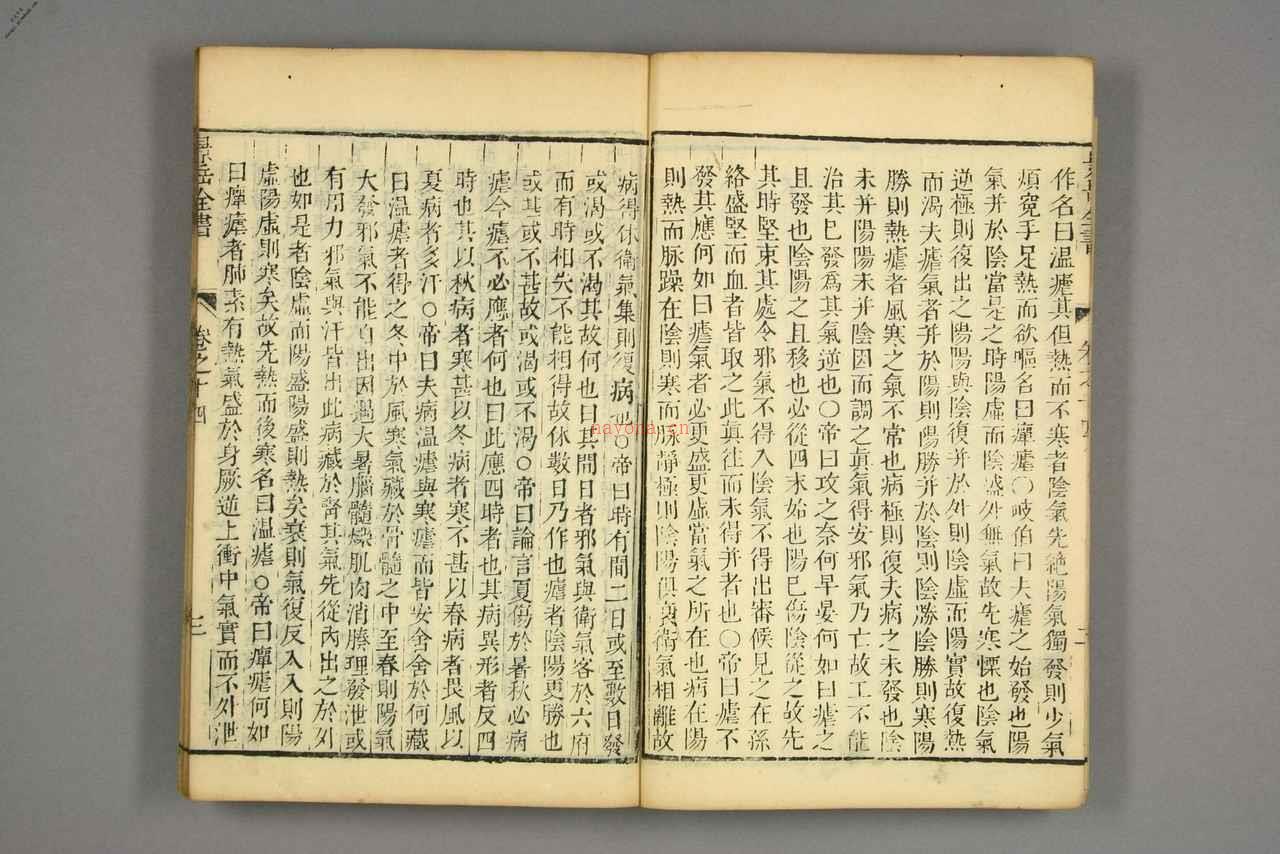 作名曰温瘧其但熱而不寒者陰氣先絶陽氣獨發則少氣
煩寃手足熱而欲嘔名曰癉瘧○岐伯曰夫瘧之始發也陽
氣并於陰當是之時陽虛而陰盛外無氣故先寒慄也陰氣
逆極則復出之陽陽與陰復并於外則陰虛而陽實故復熱
而渴夫瘧氣者并於陽則陽勝并於陰則陰勝陰勝則寒陽
勝則熱瘧者風寒之氣不常也病極則復夫病之未發也陰
未并陽陽未并陰因而調之眞氣得安邪氣乃亡故工不能
治其已發爲其氣逆也○帝曰攻之奈何早晏何如曰瘧之
且發也陰陽之且移也必從四末始也陽已傷陰從之故先
其時堅束其處令邪氣不得入陰氣不得出審候見之在孫
絡盛堅而血者皆取之此眞往而未得并者也○帝曰瘧不
發其應何如曰瘧氣者必更盛更虛當氣之所在也病在陽
則熱而脉躁在陰則寒而脉靜極則陰陽俱衰衛氣相離故
病得休衛氣集則復病也○帝曰時有間二日或至數日發
或渴或不渴其故何也曰其間日者邪氣與衛氣客於六府
而有時相失不能相得故休數日乃作也瘧者陰陽更勝也
或甚或不甚故或渴或不渴○帝曰論言夏傷於暑秋必病
瘧今瘧不必應者何也曰此應四時者也其病異形者反四
時也其以秋病者寒甚以冬病者寒不甚以春病者畏風以
夏病者多汗○帝曰夫病温瘧與寒瘧而皆安舍舍於何藏
曰温瘧者得之冬中於風寒氣藏於骨髓之中至春則陽氣
大發邪氣不能自出因遇大暑腦髓爍肌肉消腠理發泄或
有所用力邪氣與汗皆出此病藏於腎其氣先從內出之於外
也如是者陰虛而陽盛陽盛則熱矣衰則氣復反入入則陽
虛陽虛則寒矣故先熱而後寒名曰温瘧○帝曰癉瘧何如
曰癉瘧者肺素有熱氣盛於身厥逆上衝中氣實而不外泄
景岳全書
卷之十四
三
nayona.cn